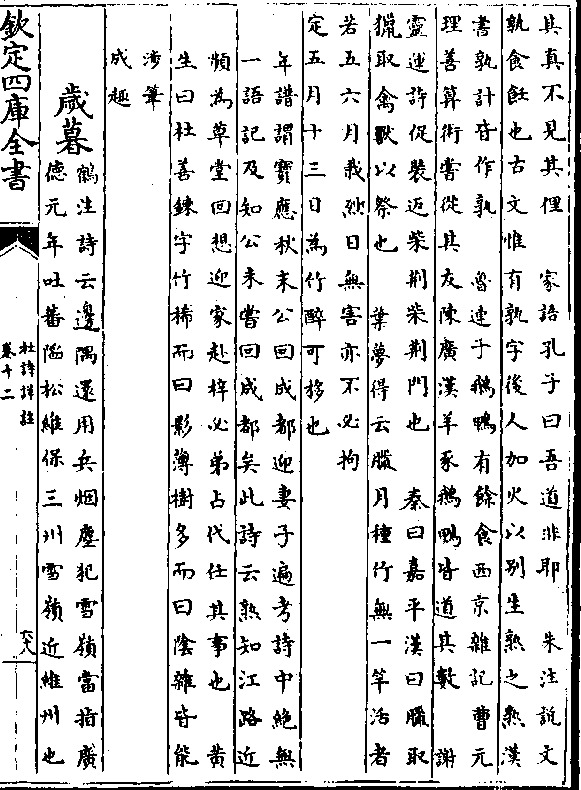 其真不見其俚　家語孔子曰吾道非耶　朱注説文
孰食飪也古文惟有孰字後人加火以别生熟之熟漢
書孰計皆作孰　魯連子鵝鴨有餘食西京雜記曹元
理善算術嘗從其友陳廣漢羊豕鵝鴨皆道其數　謝
靈運詩促裝返柴荆柴荆門也　秦曰嘉平漢曰臘取
獵取禽獸以祭也　葉夢得云臘月種竹無一竿活者
若五六月栽烈日無害亦不必拘
定五月十三日為竹醉可移也
年譜謂寶應秋末公回成都迎妻子遍考詩中絶無
一語記及知公未嘗回成都矣此詩云熟知江路近
頻為草堂回想迎家赴梓必弟占代任其事也　黄
生曰杜善鍊字竹稀而曰影薄樹多而曰陰雜皆能
涉筆
成趣
歳暮
鶴注詩云邊隅還用兵烟塵犯雪嶺當指廣
德元年吐蕃陷松維保三州雪嶺近維州也
欽定四庫全書
杜詩詳註
卷十二
六八